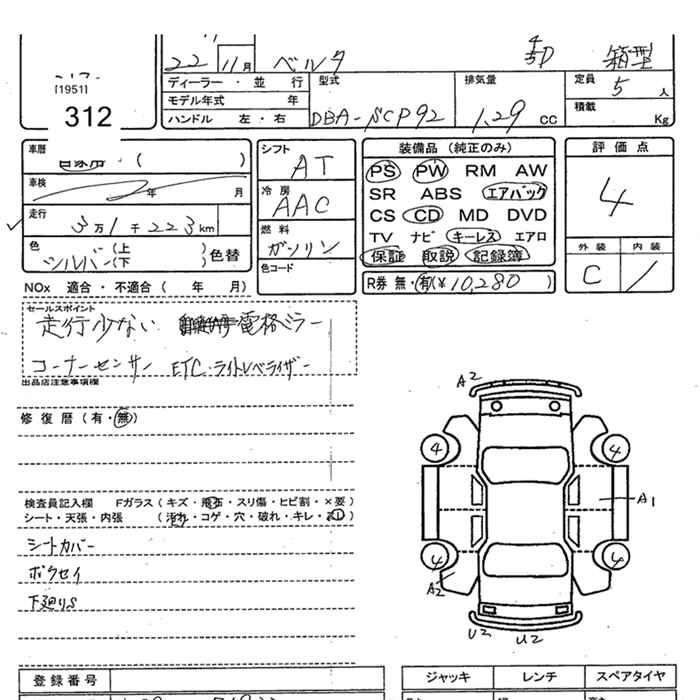 22 11月 ベルタ 5D 箱型
[1951]
312
ディーラー・並行
モデル年式 年
ハンドル 左・右
型式
DBA-SCP92
排気量
1.29 CC
定員 5 人
積載 Kg
車歴
自家用・( )
車検 年 月
走行 3万1千223km
色 シルバー (上 )
(下 ) 色替
シフト
AT
冷房
AAC
燃料
ガソリン
色コード
装備品(純正のみ)
PS PW RM AW
SR ABS エアバック
CS CD MD DVD
TV ナビ キーレス エアロ
保証 取説 記録簿
R券 無・有(¥10,280)
評価点
4
外装 内装
C
NOx 適合・不適合( 年 月)
セールスポイント
走行少ない 電格ミラー
コーナーセンサー ETC・ライトレベライザー
出品店注意事項欄
修復歴(有・無)
検査員記入欄 Fガラス(キズ・飛石・スリ傷・ヒビ割・×要)
シート・天張・内張 (汚れ・コゲ・穴・破れ・キレ・
シートカバー
ボクセイ
下廻りS
A2
4 4
A1
4 4
A2
U2 U2
登録番号
ジャッキ レンチ スペアタイヤ